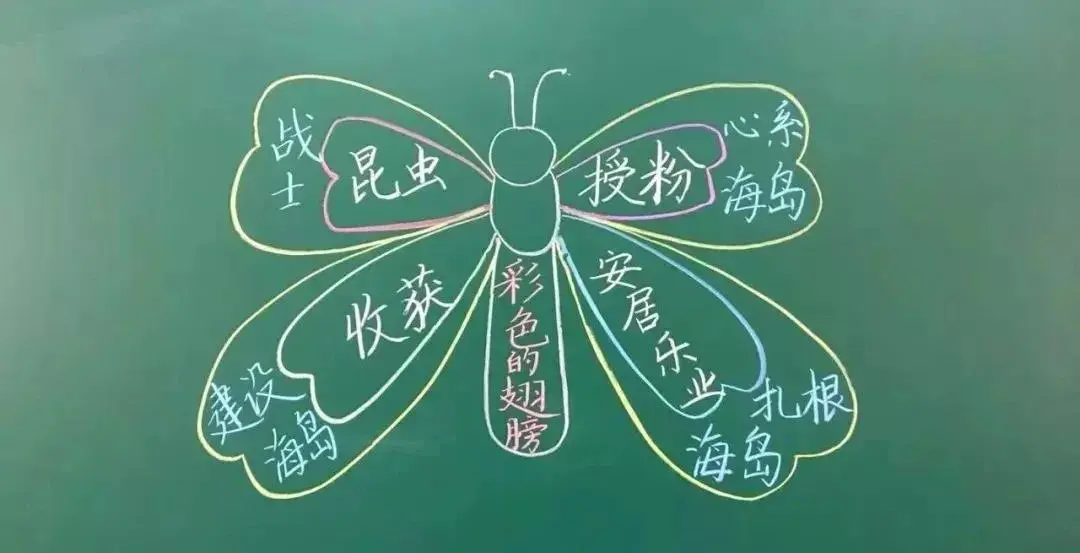 战士
昆虫
授粉
心系
海岛
收获
彩色的翅膀
安居乐业
建设
海岛
扎根
海岛